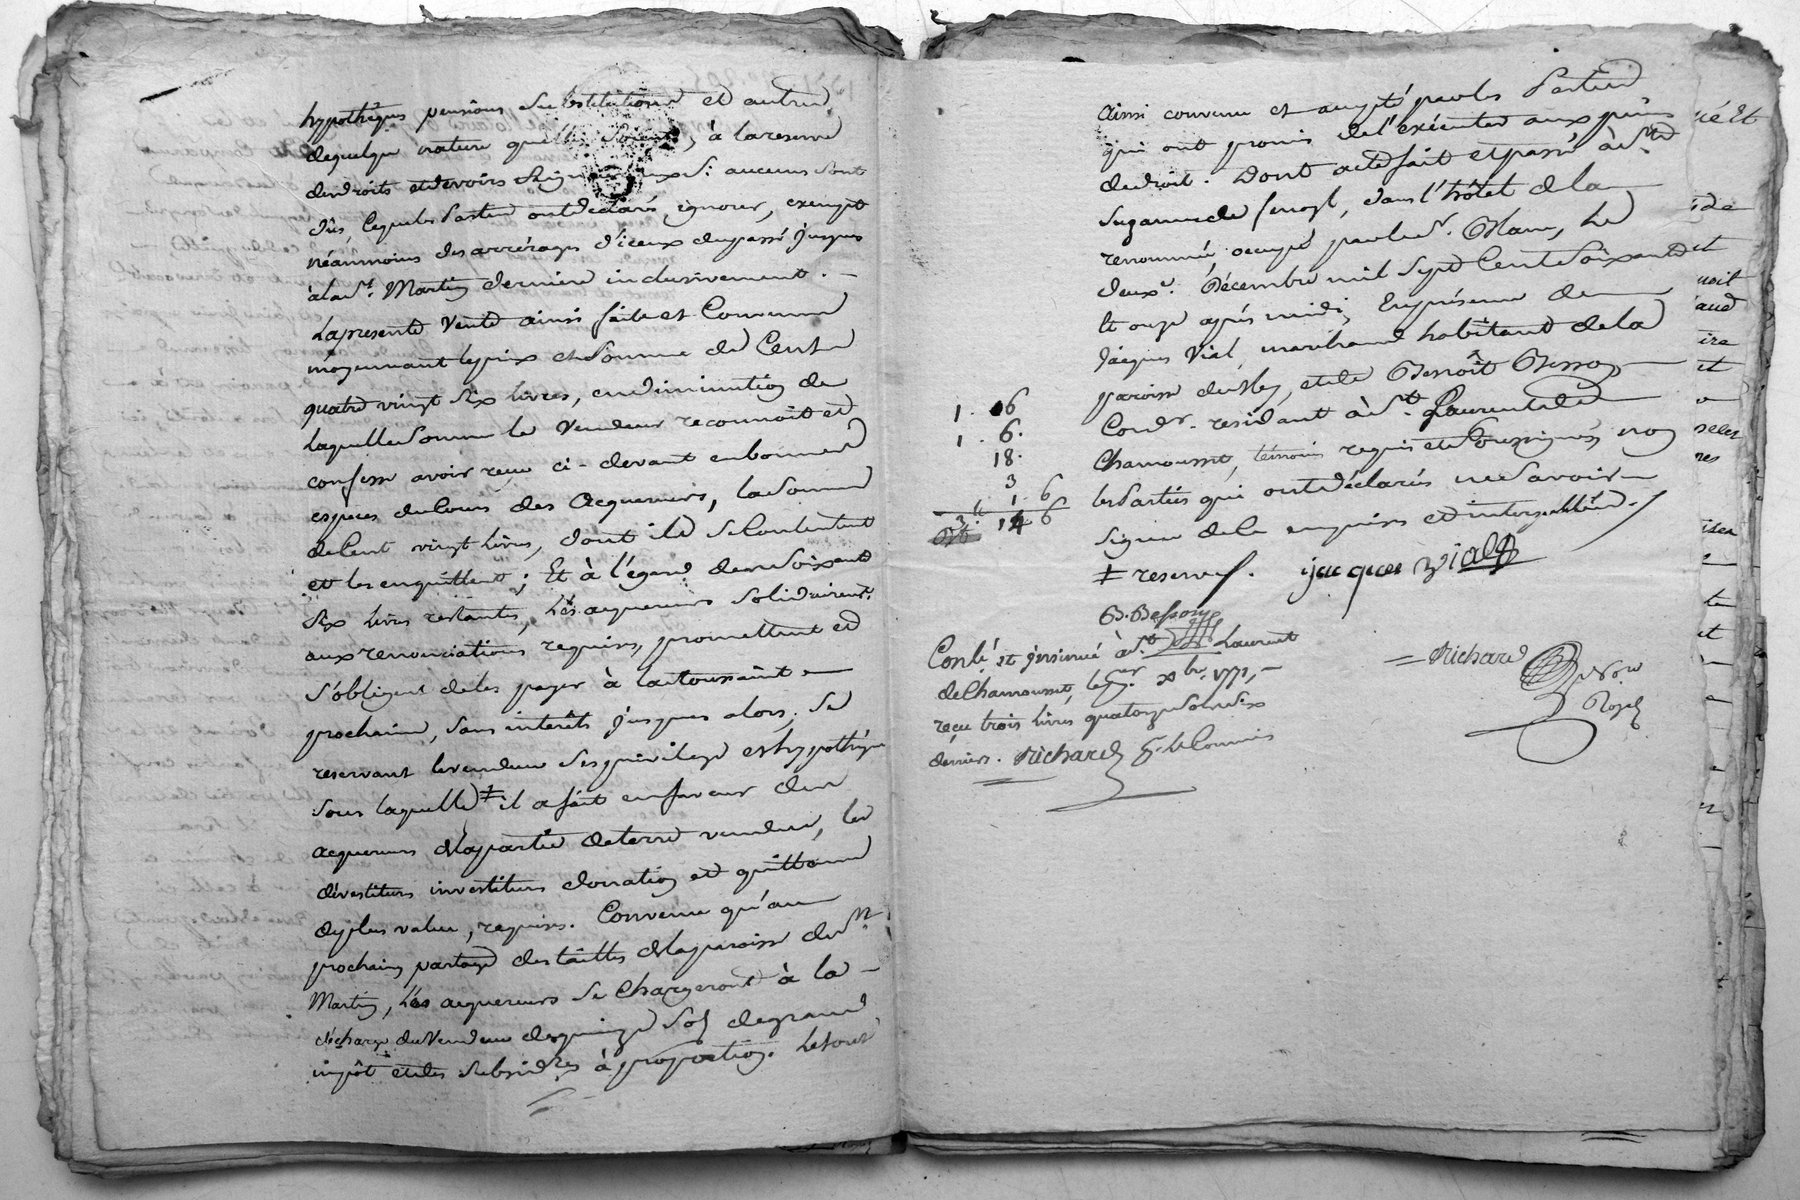 hypothèques pensions substitutions et autres
de quelque nature quelles soient, à la reserve
des droits et devoirs Seigneuriaux Si aucuns sont
dûs, lequels Parties ont déclarés ignorer, exempte
néanmoins des arrérages d'iceux du passé jusques
à la St. Martin derniere inclusivement. —
La presente Vente ainsi faite et Convenue
moyennant le prix et Somme de Cent
quatre vingt Six livres, en diminution de
laquelle Somme le Vendeur reconnoit et
confesse avoir reçu ci-devant en bonnes
espèces du Cours des Acquereurs, la Somme
de Cent vingt livres, dont il Se Contente
et les en quitte; Et à l'égard des Soixante
Six livres restantes, Les acquereurs solidairemt.
aux renonciations requises, promettent et
S'obligent de les payer à la toussaint —
prochaine, Sans interêts jusques alors, Se
reservant le vendeur Ses privilege et hypothèque
Sous laquelle ‡ il a fait en faveur des
acquereurs de la partie de terre vendue, les
dévestitures investitures donation et quittance
de plus value, requises. Convenu qu'au
prochain partage des tailles de la paroisse de St.
Martin, Les acquereurs Se Chargeront à la —
décharge du Vendeur de quinze Sols de grand
impôt et des Subsides à proportion. Le tout
ainsi convenu et accepté par les Parties
qui ont promis de l'exécuter aux peines
de droit. Dont acte fait et passé à Ste
Suzanne de, dans l'hôtel de la —
renommée, occupé par le Sr. Blanc, Le
deuxe. Décembre mil Sept Cent Soixante
et onze après midi, En présence de —
Jacques Vial, marchand habitant de la
paroisse de, et de Benoît Besson —
Cordr. residant à St. Laurent de
Chamousset, témoins requis et Soussignés, non
les Parties qui ont déclarés ne Savoir —
Signer de ce enquises et interpellées. /
‡ reserve /. ijacques vial
B. Besson
1. 06
1. 6.
18.
3
1. 6
3.ll 14 6
Conlé. et insinué à St. Laurent
de Chamousset, le xbre. 1771, —
reçu trois livres quatorze Sols Six
deniers. Richard
= Richard
Nore
Royal